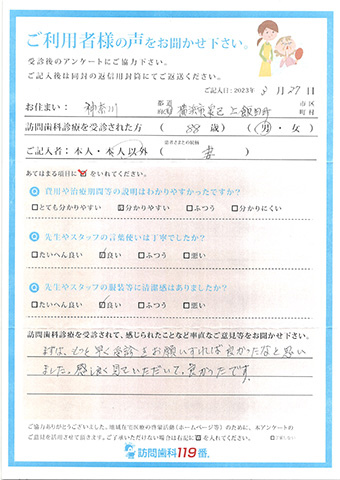 ご利用者様の声をお聞かせ下さい。
受診後のアンケートにご協力下さい。
ご記入後は同封の返信用封筒にてご返送ください。
ご記入日：2023年 3 月 27 日
お住まい： 神奈川 都道府県 横浜市泉区上飯田町 市区町村
訪問歯科診療を受診された方 （ 88 歳） （ 男 ・ 女 ）
ご記入者：本人・本人以外 （ 患者さまとの続柄 妻 ）
あてはまる項目に☑をいれてください。
Q 費用や治療期間等の説明はわかりやすかったですか？
□とても分かりやすい ☑分かりやすい □ふつう □分かりにくい
Q 先生やスタッフの言葉使いは丁寧でしたか？
□たいへん良い ☑良い □ふつう □悪い
Q 先生やスタッフの服装等に清潔感はありましたか？
□たいへん良い ☑良い □ふつう □悪い
訪問歯科診療を受診されて、感じられたことなど率直なご意見等をお聞かせ下さい。
まずは、もっと早く受診をお願いすれば良かったなと思い
ました。感じ良く見ていただいて、良かったです。
ご協力ありがとうございました。地域在宅医療の啓蒙活動（ホームページ等）のために、本アンケートの
ご意見を活用させて頂きます。ご了承いただけない場合は右記に☑を入れてください。
訪問歯科119番。